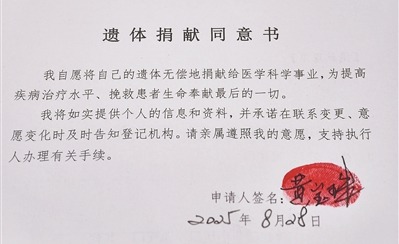 遗体捐献同意书
我自愿将自己的遗体无偿地捐献给医学科学事业，为提高
疾病治疗水平、挽救患者生命奉献最后的一切。
我将如实提供个人的信息和资料，并承诺在联系变更、意
愿变化时及时告知登记机构。请亲属遵照我的意愿，支持执行
人办理有关手续。
申请人签名：黄宝
2025年8月28日